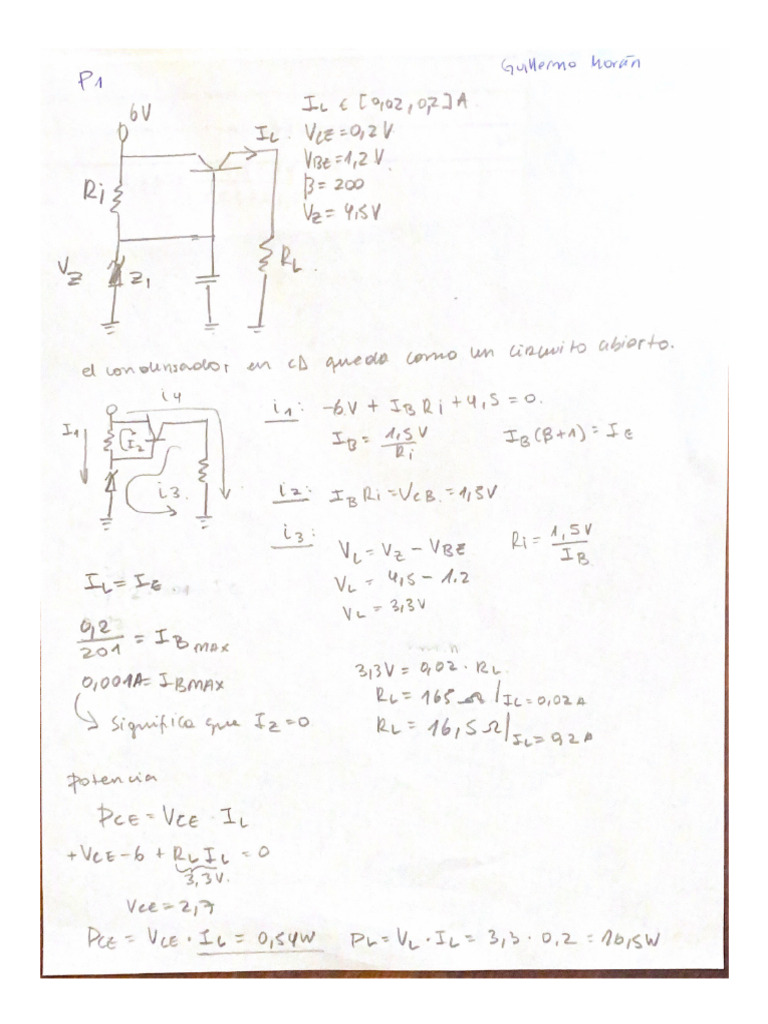 Guillermo Morán
P1
6V
IL ∈ [0,02, 0,2] A
IL
VCE = 0,2 V
VBE = 1,2 V
β = 200
VZ = 4,5V
Ri
VZ
Z1
RL
el condensador en CD queda como un circuito abierto.
i4
I1
I2
i3
i1: -6V + IB Ri + 4,5 = 0.
IB = 1,5V / Ri
IB(β+1) = IE
i2: IB Ri = VCB = 1,5V
i3:
VL = VZ - VBE
Ri = 1,5V / IB
VL = 4,5 - 1.2
VL = 3,3V
IL = IE
0,2 / 201 = IB MAX
0,001A = IBMAX
Significa que IZ = 0
3,3V = 0,02 · RL
RL = 165 Ω | IL = 0,02 A
RL = 16,5 Ω | IL = 0,2 A
Potencia
PCE = VCE · IL
+VCE - 6 + RL IL = 0
3,3V.
VCE = 2,7
PCE = VCE · IL = 0,54W
PL = VL · IL = 3,3 · 0,2 = 16,5W